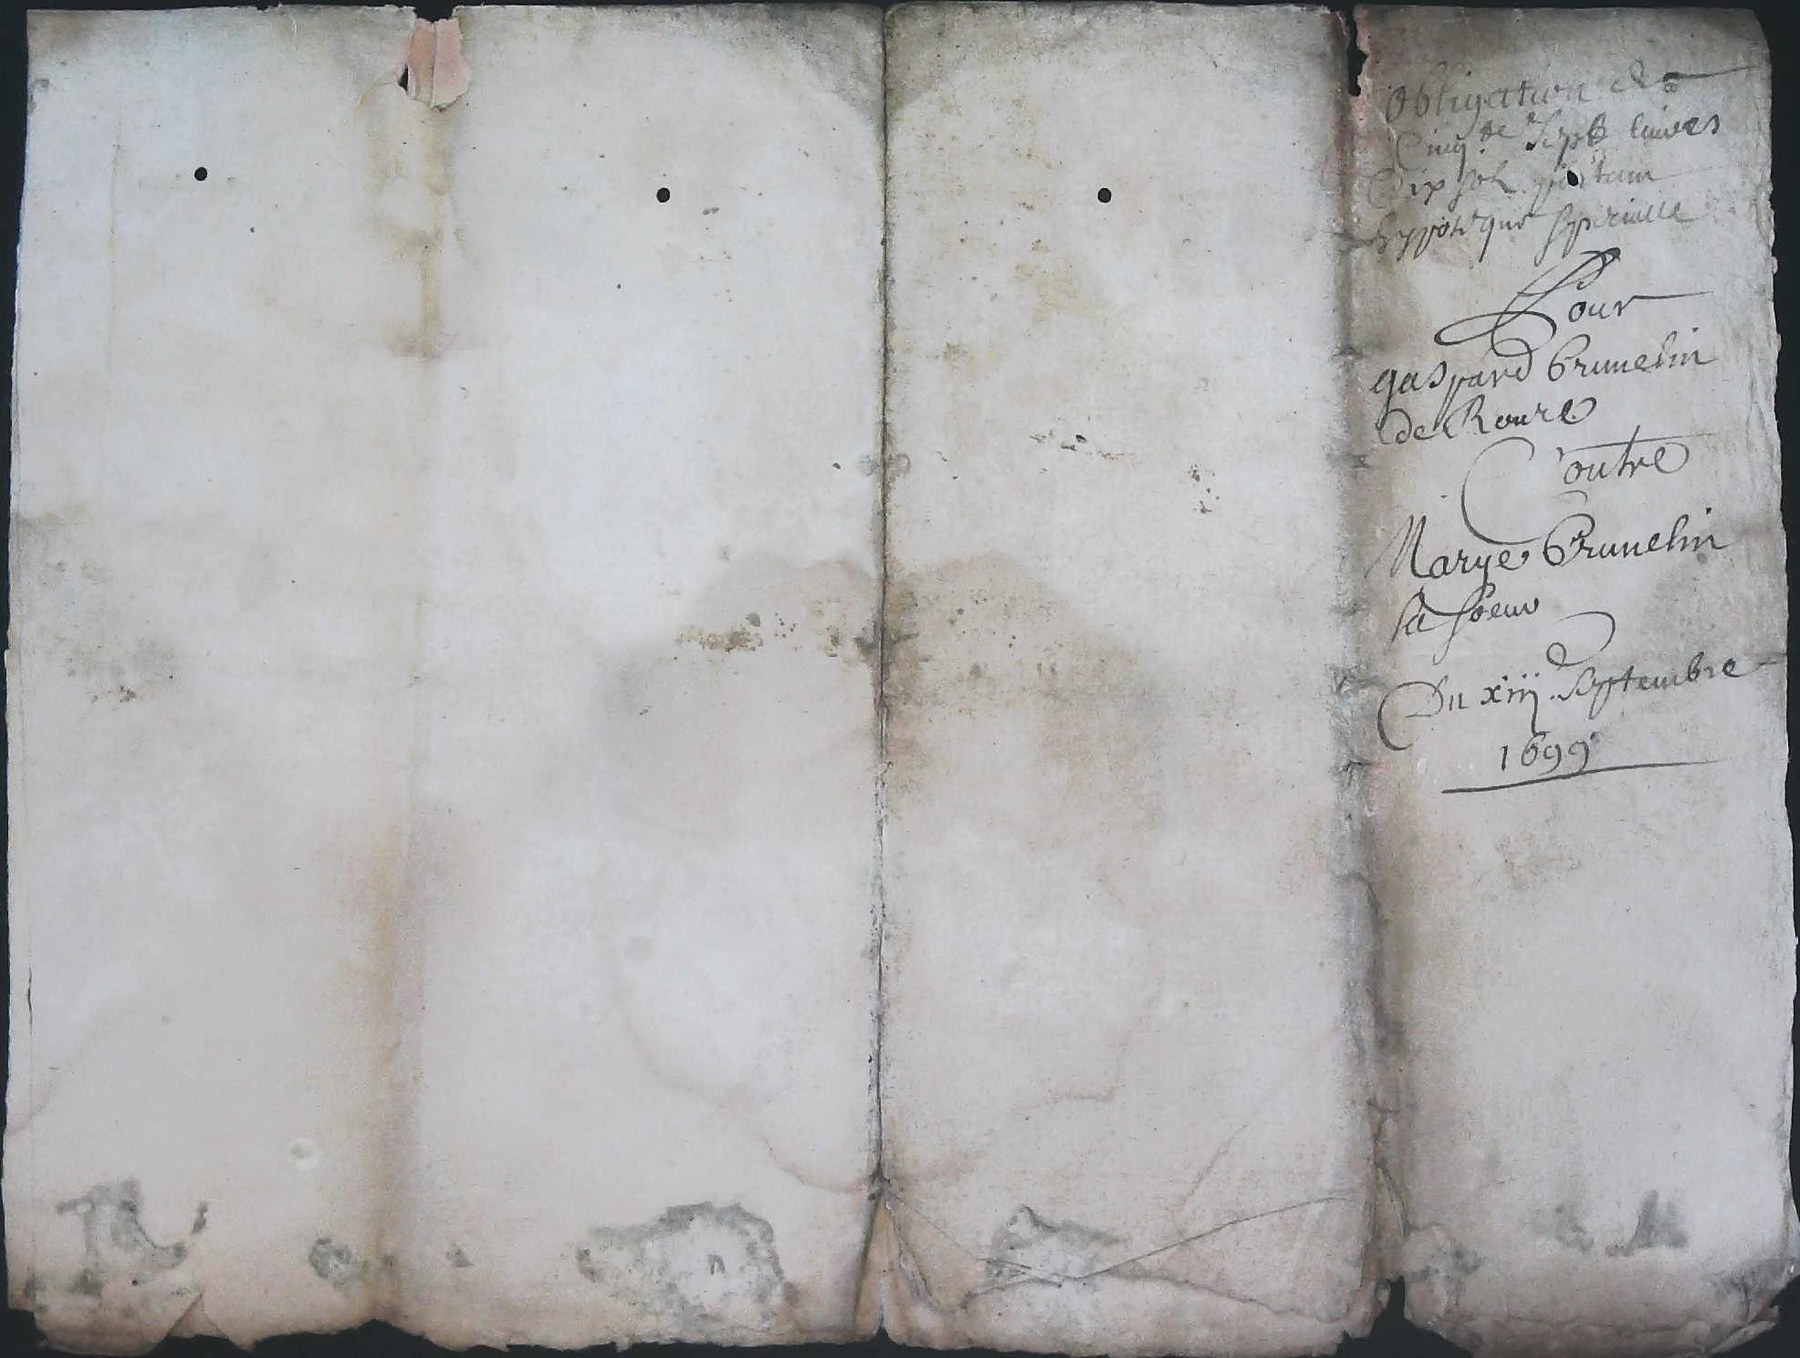 Obligation de
Cinq.te Sept livres
Dix sols portant
hypoteque specialle
Pour
gaspard Brunelin
de Roure
Contre
Marye Brunelin
sa soeur
Du xiij Septembre
1699